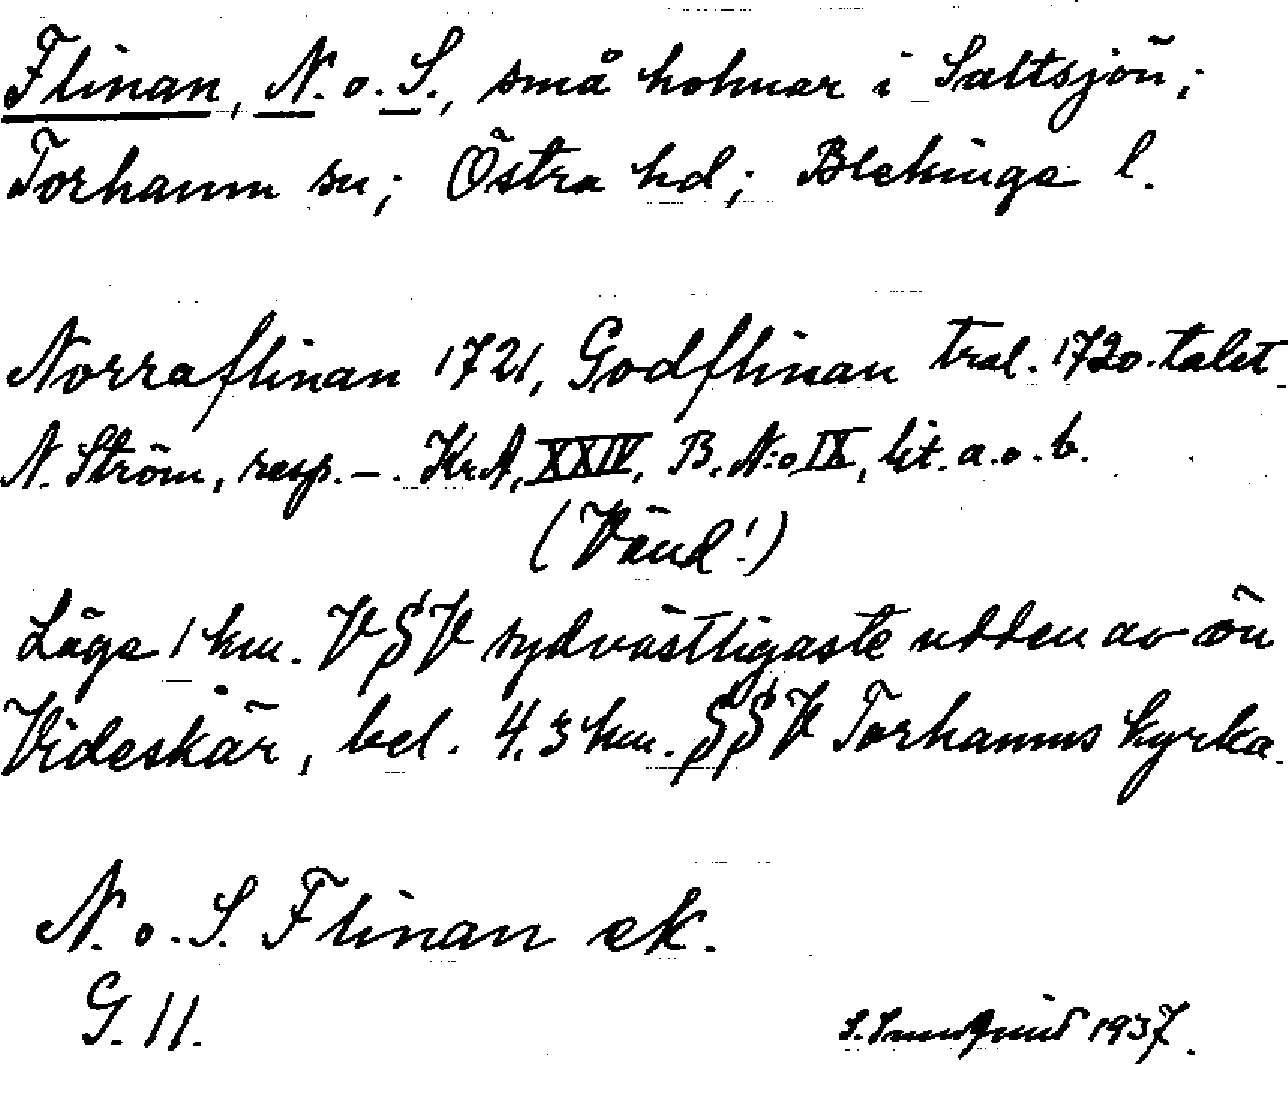 Flinan, N. o. S., små holmar i Saltsjön;
Torhamn sn; Östra hd; Blekinge l.
Norraflinan 1721, Godflinan trol. 1720-talet
N. Ström, resp. –. Kr.A, XXIV, B. N:o IX, lit. a. o. b.
(Vänd!)
Läge 1 km. V§V sydvästligaste udden av ön
Videskär, bel. 4,3 km. §§V Torhamns kyrka.
N. o. S. Flinan ek.
G. 11.
1937.